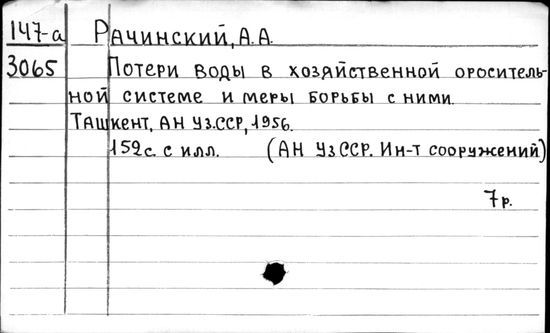 147-а Рачинский, А.А.
3065 Потери воды в хозяйственной ороситель-
ной системе и меры борьбы с ними.
Ташкент, АН УзССР, 1956.
152 с. с илл. (АН УзССР. Ин-т сооружений)
7р.